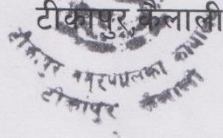 टीकापुर, कैलाली
टीकापुर नगरपालिका कार्या
टीकापुर कैलाली